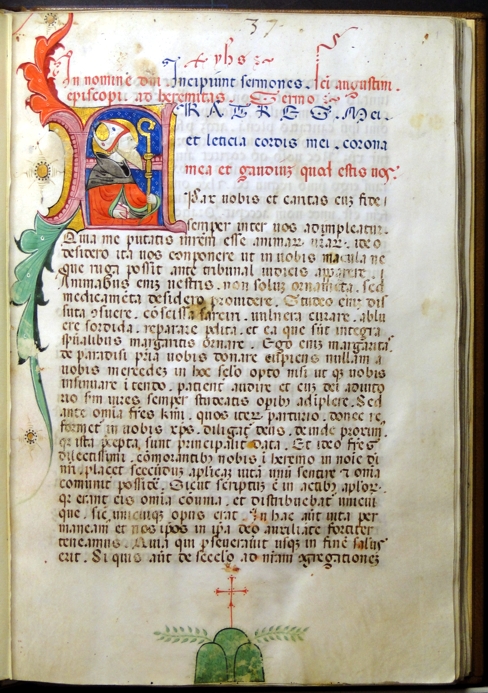 37
+ yhs
In nomine dni Incipiunt sermones. sci augustini.
episcopi. ad heremitas. Sermo
FRATRES. Mei.
et leticia cordis mei. corona
mea et gaudiuz quod estis uos.
Pax uobis et caritas cuz fide
semper inter uos adimpleatur.
Quia me putatis inrem esse animar urar. ideo
desidero ita uos conponere ut in uobis macula ne
que ruga possit ante tribunal iudicis apparere.
Animabus eniz uestris. non soluz ornameta. sed
medicameta desidero prouidere. Studeo eniz dis
suta 9suere. coscissa sarcire. uulnera curare. ablu
ere sordida. reparare pdita. et ea que sut integra
spualibus margaritis ornare. Ego eniz margarita
de paradisi pria uobis donare cupiens nullam a
uobis mercedez in hoc selo opto nisi ut qz uobis
insinuare itendo. patient audire et cuz dei adiuto
rio sm uires semper studeatis opibz adiplere. Sed
ante omia fres kmi. quos iter parturio. donec re
formet in uobis xps. diligat deus. deinde proxim.
qz ista pcepta sunt principalit data. Et ideo fres
dilectissimi. comorantibz nobis i heremo in noie di
ni. placet secunduz aplicaz uita uniu sentire 7 omia
comunit possidere. Sicut scriptuz e in actibz aplor.
qz erant eis omia comuia. et distribuebat unicui
que. sic unicuiqz opus erat. In hac aut uita per
maneam et nos ipos in ipa deo auxiliate fortiter
teneamus. Quia qui pseuerauit usqz in fine saluus
erit. Si quis aut de seculo ad nram agregationez